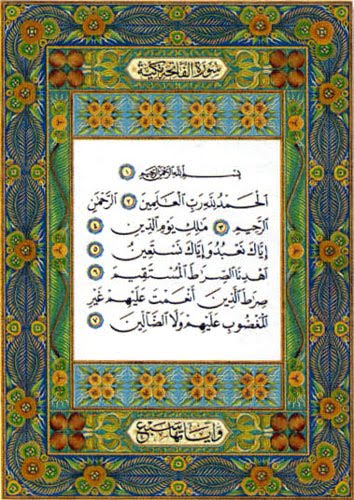 سورة الفاتحة مكية
بسم الله الرحمن الرحيم ١
الحمد لله رب العلمين ٢ الرحمن
الرحيم ٣ ملك يوم الدين ٤
إياك نعبد وإياك نستعين ٥
اهدنا الصرط المستقيم ٦
صرط الذين أنعمت عليهم غير
المغضوب عليهم ولا الضالين ٧
وآياتها سبع